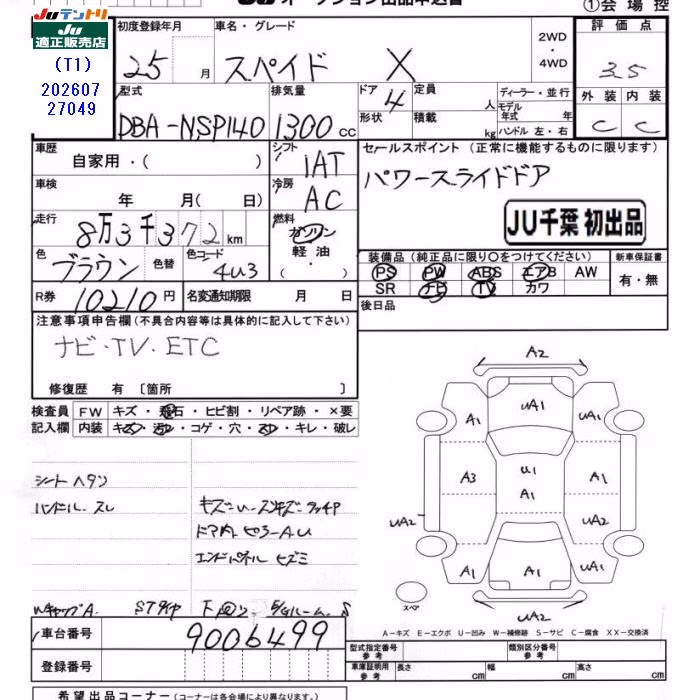 JUテントリ
JU
適正販売店
(T1)
202607
27049
①会場控
初度登録年月
25
月
車名・グレード
スペイド X
2WD
・
4WD
評価点
3.5
外装 内装
C C
型式
DBA-NSP140
排気量
1300 cc
ドア
4
形状
定員
人
積載
kg
ディーラー・並行
モデル
年式 年
ハンドル 左・右
車歴
自家用・( )
シフト
IAT
セールスポイント (正常に機能するものに限ります)
パワースライドドア
車検
年 月( 日)
冷房
AC
JU千葉 初出品
走行
8万3千372 km
燃料
ガソリン
軽油
・
( )
色
ブラウン
色替
色コード
4U3
装備品 (純正品に限り○をつけてください)
PS PW ABS エアB AW
SR ナビ TV カワ
新車保証書
有・無
R券
10210円
名変通知期限 月 日
後日品
注意事項申告欄(不具合内容等は具体的に記入して下さい)
ナビ・TV・ETC
修復歴 有 〔箇所 〕
検査員
記入欄
FW キズ・飛石・ヒビ割・リペア跡・×要
内装 キズ・汚れ・コゲ・穴・スレ・キレ・破レ
シートヘタリ
ハンドル.スレ
キズ・U・スリキズ・タッチP
エンドパネル ヒズミ
WキャップA.
A2
A1
UA1
UA1
A3
U1
A1
A1
UA2
UA2
A1
A1
UA1
UA2
スペア
A-キズ E-エクボ U-凹み W-補修跡 S-サビ C-腐食 XX-交換済
車台番号
9006499
登録番号
型式指定番号
参考
類別区分番号
参考
車庫証明用
参考
長さ cm
幅 cm
高さ cm
希望出品コーナー (コーナーは各会場により異なります。)